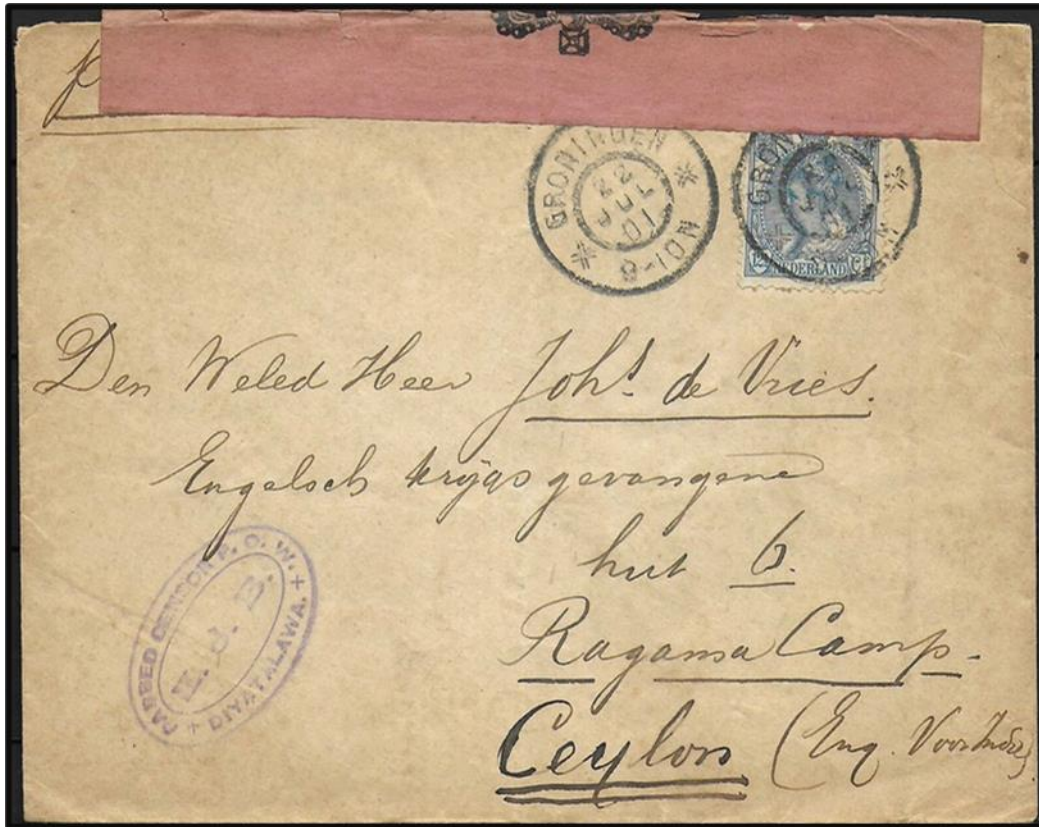 GRONINGEN
22
JUL
01
8-10N
GRON
NEDERLAND
Den Weled Heer Johs. de Vries.
Engelsch krijgsgevangene
hut 6.
Ragama Camp.
Ceylon (Eng. Voor Indië)
PASSED CENSOR P. O. W.
H. J. B.
DIYATALAWA.